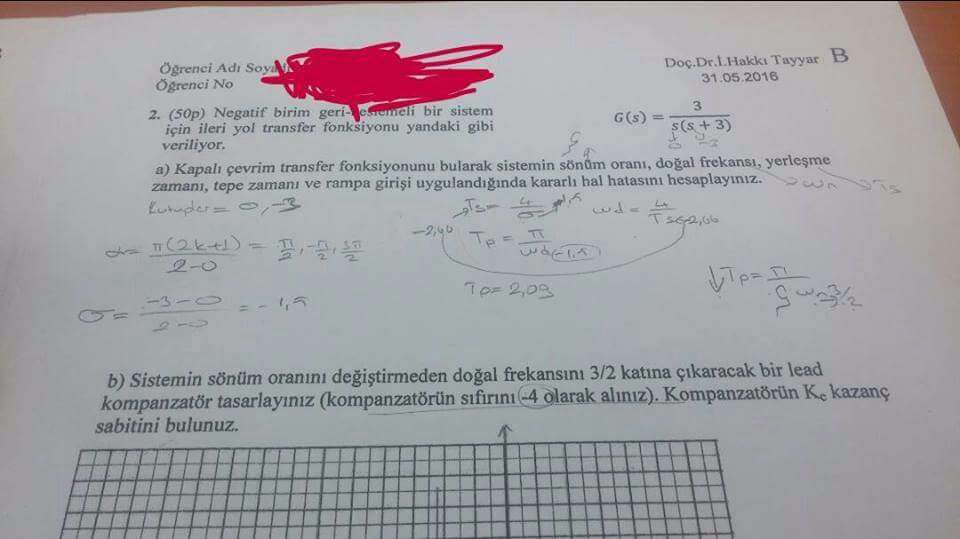 Öğrenci Adı
Öğrenci No
Doç.Dr.İ.Hakkı Tayyar B
31.05.2016
2. (50p) Negatif birim bir sistem
için ileri yol transfer fonksiyonu yandaki gibi
veriliyor.
G(s) = 3 / s(s + 3)
0 -3
a) Kapalı çevrim transfer fonksiyonunu bularak sistemin sönüm oranı, doğal frekansı, yerleşme
zamanı, tepe zamanı ve rampa girişi uygulandığında kararlı hal hatasını hesaplayınız.
wn Ts
Kutuplar = 0, -3
Ts = 4/σ
wd = 4/Ts
α = π(2k+1)/2-0 = π/2, -π/2, 3π/2
Tp = π/wd
Tp = 2,09
Tp = π
σ = -3-0/2-0 = -1,5
b) Sistemin sönüm oranını değiştirmeden doğal frekansını 3/2 katına çıkaracak bir lead
kompanzatör tasarlayınız (kompanzatörün sıfırını -4 olarak alınız). Kompanzatörün Kc kazanç
sabitini bulunuz.